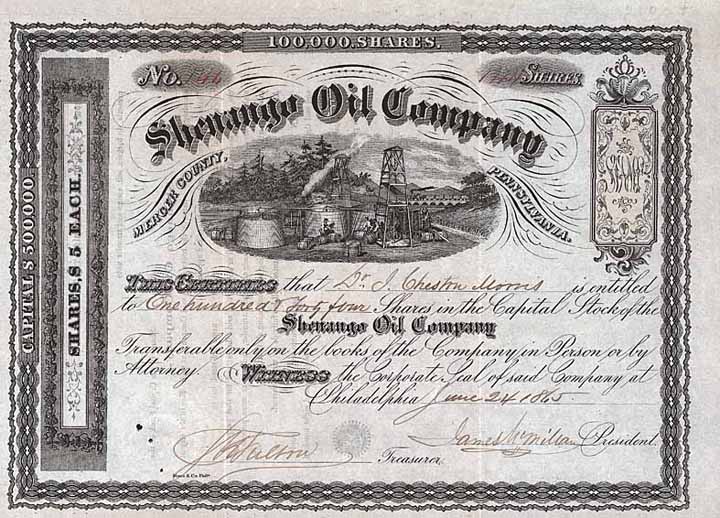 100,000, SHARES.
No. 146
SHARES
Shenango Oil Company
MERCER COUNTY, PENNSYLVANIA.
CAPITAL $ 500,000.
SHARES, $ 5 EACH.
THIS CERTIFIES that Dr. J. Cheston Morris is entitled
to One hundred & forty four Shares in the Capital Stock of the
Shenango Oil Company
Transferable only on the books of the Company in Person or by
Attorney. WITNESS the Corporate Seal of said Company at
Philadelphia June 24 1865
James McMillan President.
Treasurer